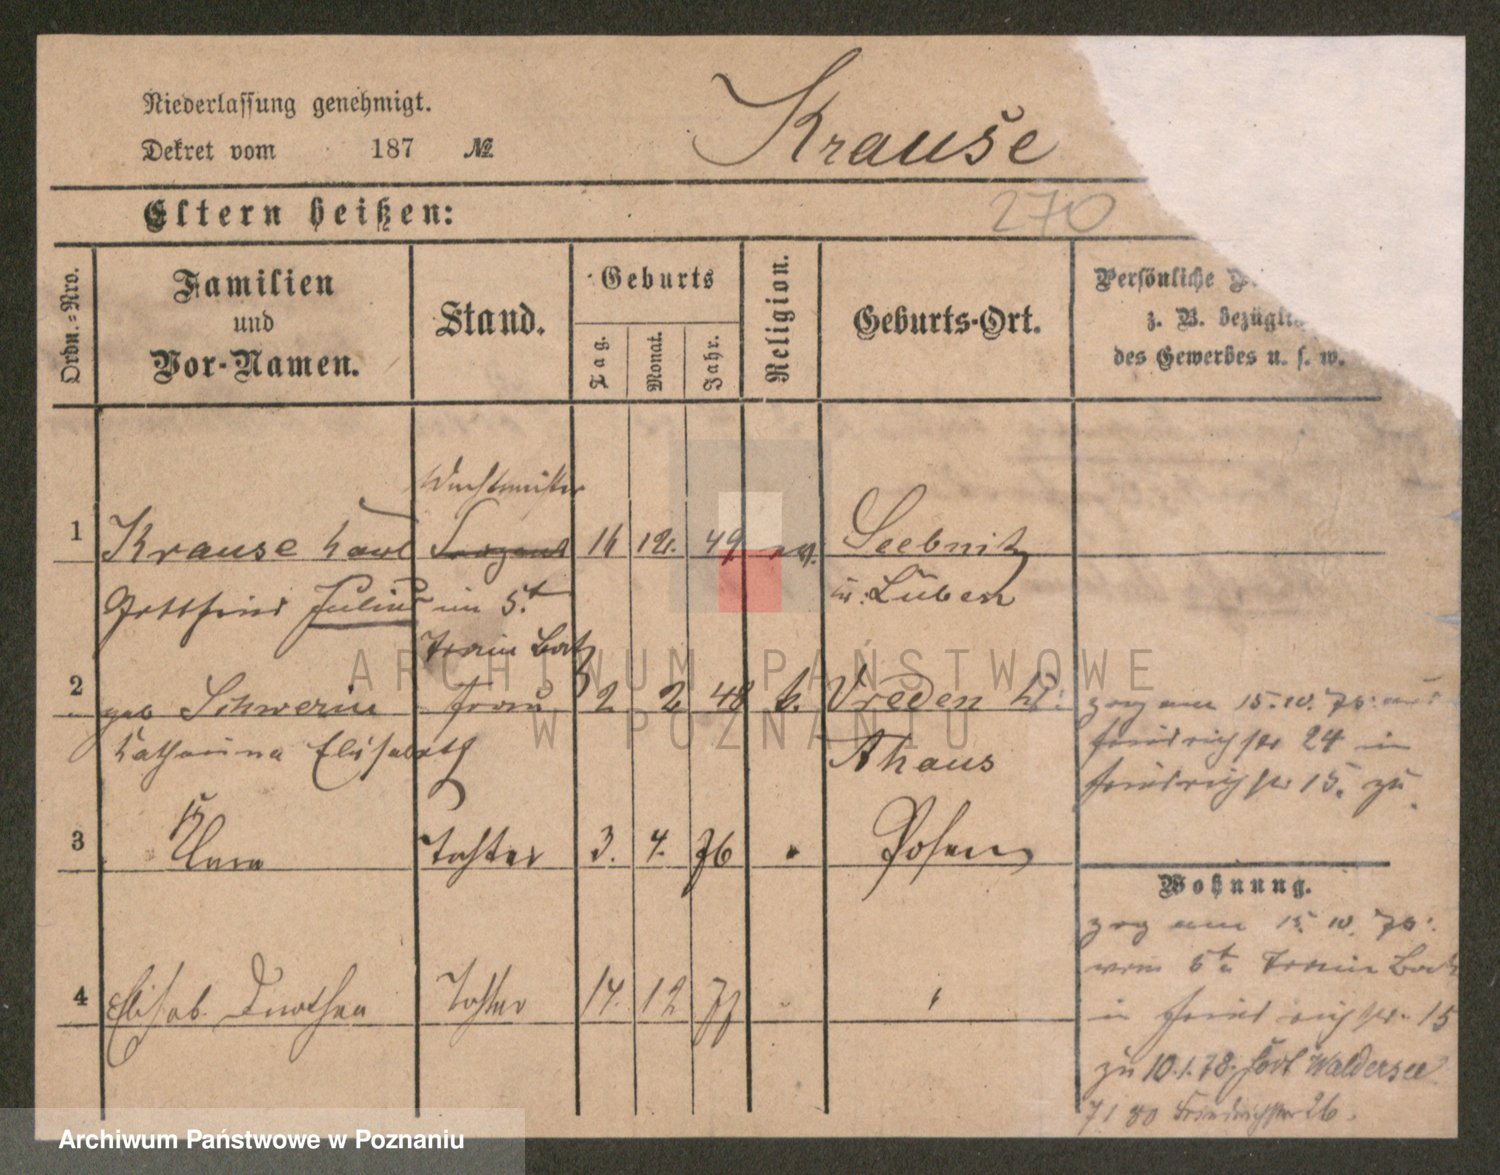 Niederlassung genehmigt.
Dekret vom 187 №
Krause
270
Eltern heißen:
Ordn.-Nro.
Familien
und
Vor-Namen.
Stand.
Geburts
Tag.
Monat.
Jahr.
Religion.
Geburts-Ort.
Persönliche
z. B. bezügli
des Gewerbes u. s. w.
Wachtmeister
1 Krause Karl Sergeant 16 12. 49 ev. Seebnitz
Gottfried Julius im 5.t Lüben
Train Bat
2 geb Schwerin Frau 2. 2. 48 k. Vreden Kr:
Katharina Elisabeth Ahaus
zog am 15.10.76. aus
Friedrichstr 24 in
Friedrichstr 15. zu
3 Clara Tochter 3. 4. 76 Posen
Wohnung.
zog am 15. 10. 76.
vom 5t Train Bat
4 Elisab. Dorothea Tochter 14. 12 77
in Friedrichstr. 15
zu 10.1.78. Fort Waldersee
7 1 80 Friedrichstr 26.
ARCHIWUM PAŃSTWOWE
W POZNANIU
Archiwum Państwowe w Poznaniu